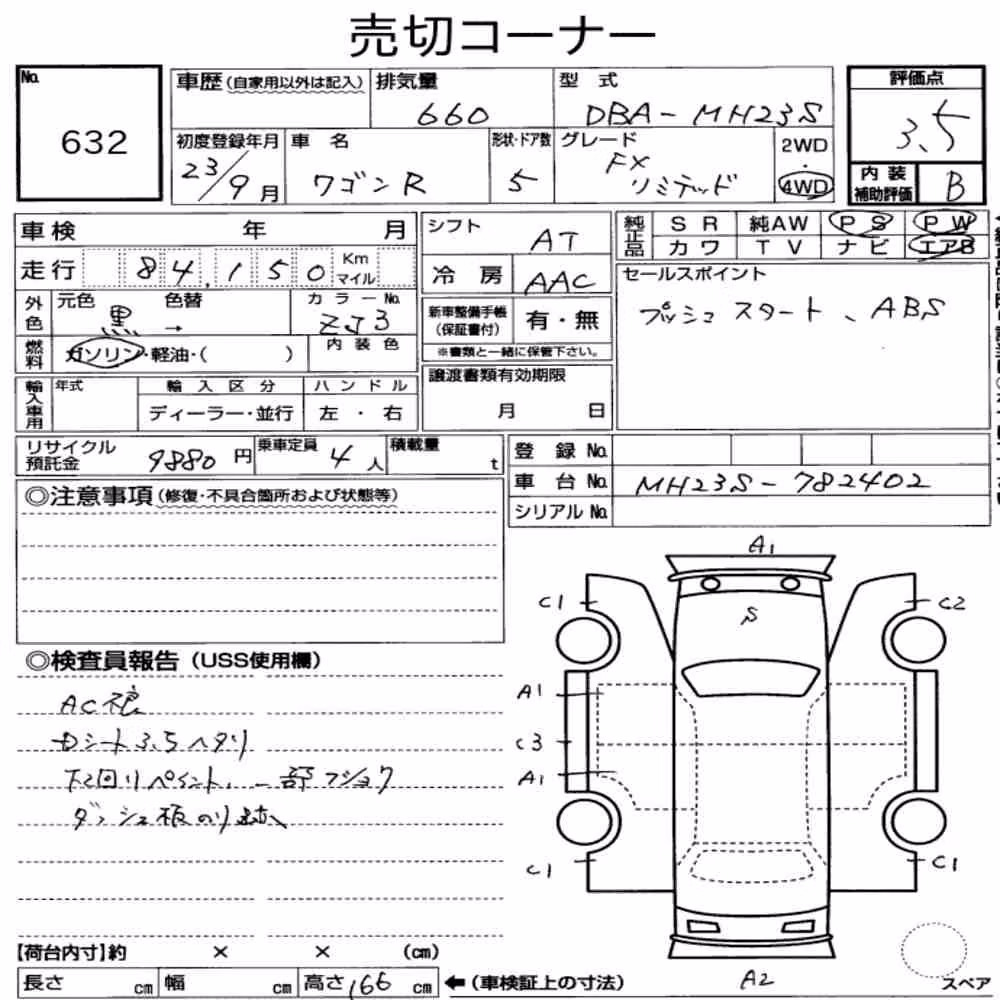 売切コーナー
No.
632
車歴(自家用以外は記入)
排気量
660
型 式
DBA-MH23S
評価点
3.5
初度登録年月
23/9月
車 名
ワゴンR
形状・ドア数
5
グレード
FX
リミテッド
2WD
・
4WD
内 装
補助評価
B
車検 年 月
走行 84,150 Km
マイル
外色
元色 色替
黒 →
カラーNo.
ZJ3
燃料
ガソリン・軽油・( )
内 装 色
輸入車用
年式
輸 入 区 分
ディーラー・並行
ハ ン ド ル
左 ・ 右
シフト
AT
冷 房
AAC
新車整備手帳
(保証書付)
有・無
※書類と一緒に保管下さい。
譲渡書類有効期限
月 日
純正品
SR 純AW PS PW
カワ TV ナビ エアB
セールスポイント
プッシュスタート、ABS
リサイクル
預託金
9880 円
乗車定員
4 人
積載量
t
登 録 No.
車 台 No. MH23S-782402
シリアル No.
◎注意事項(修復・不具合箇所および状態等)
◎検査員報告(USS使用欄)
AC
Dシートふちヘタリ
下回りペイント、一部フショク
ダッシュ板のり跡
A1
S
C1
C2
A1
C3
A1
C1
C1
A2
スペア
【荷台内寸】約 × × (cm)
長さ cm 幅 cm 高さ166 cm ←(車検証上の寸法)